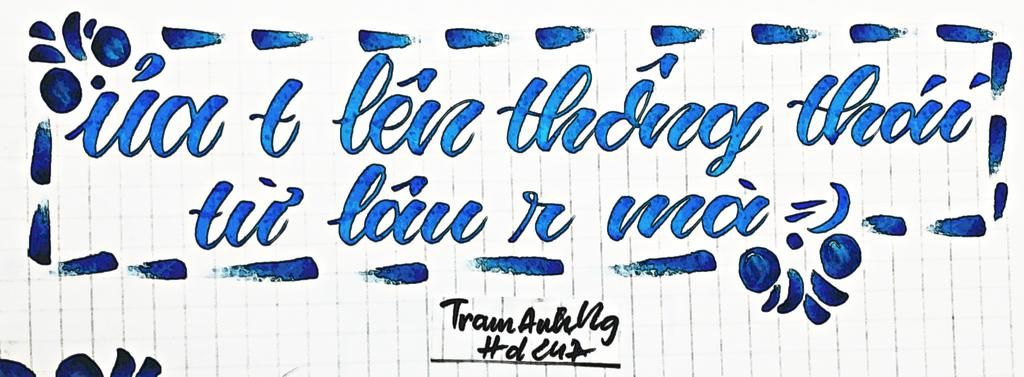 ủa t lên thống thái
từ lâu r mà =)
TramAnhNg
#d247